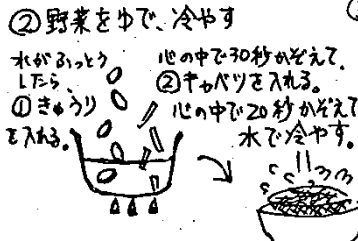 ②野菜をゆで、冷やす
水がふっとう
したら、
①きゅうり
を入れる。
心の中で30秒かぞえて、
②キャベツを入れる。
心の中で20秒かぞえて
水で冷やす。